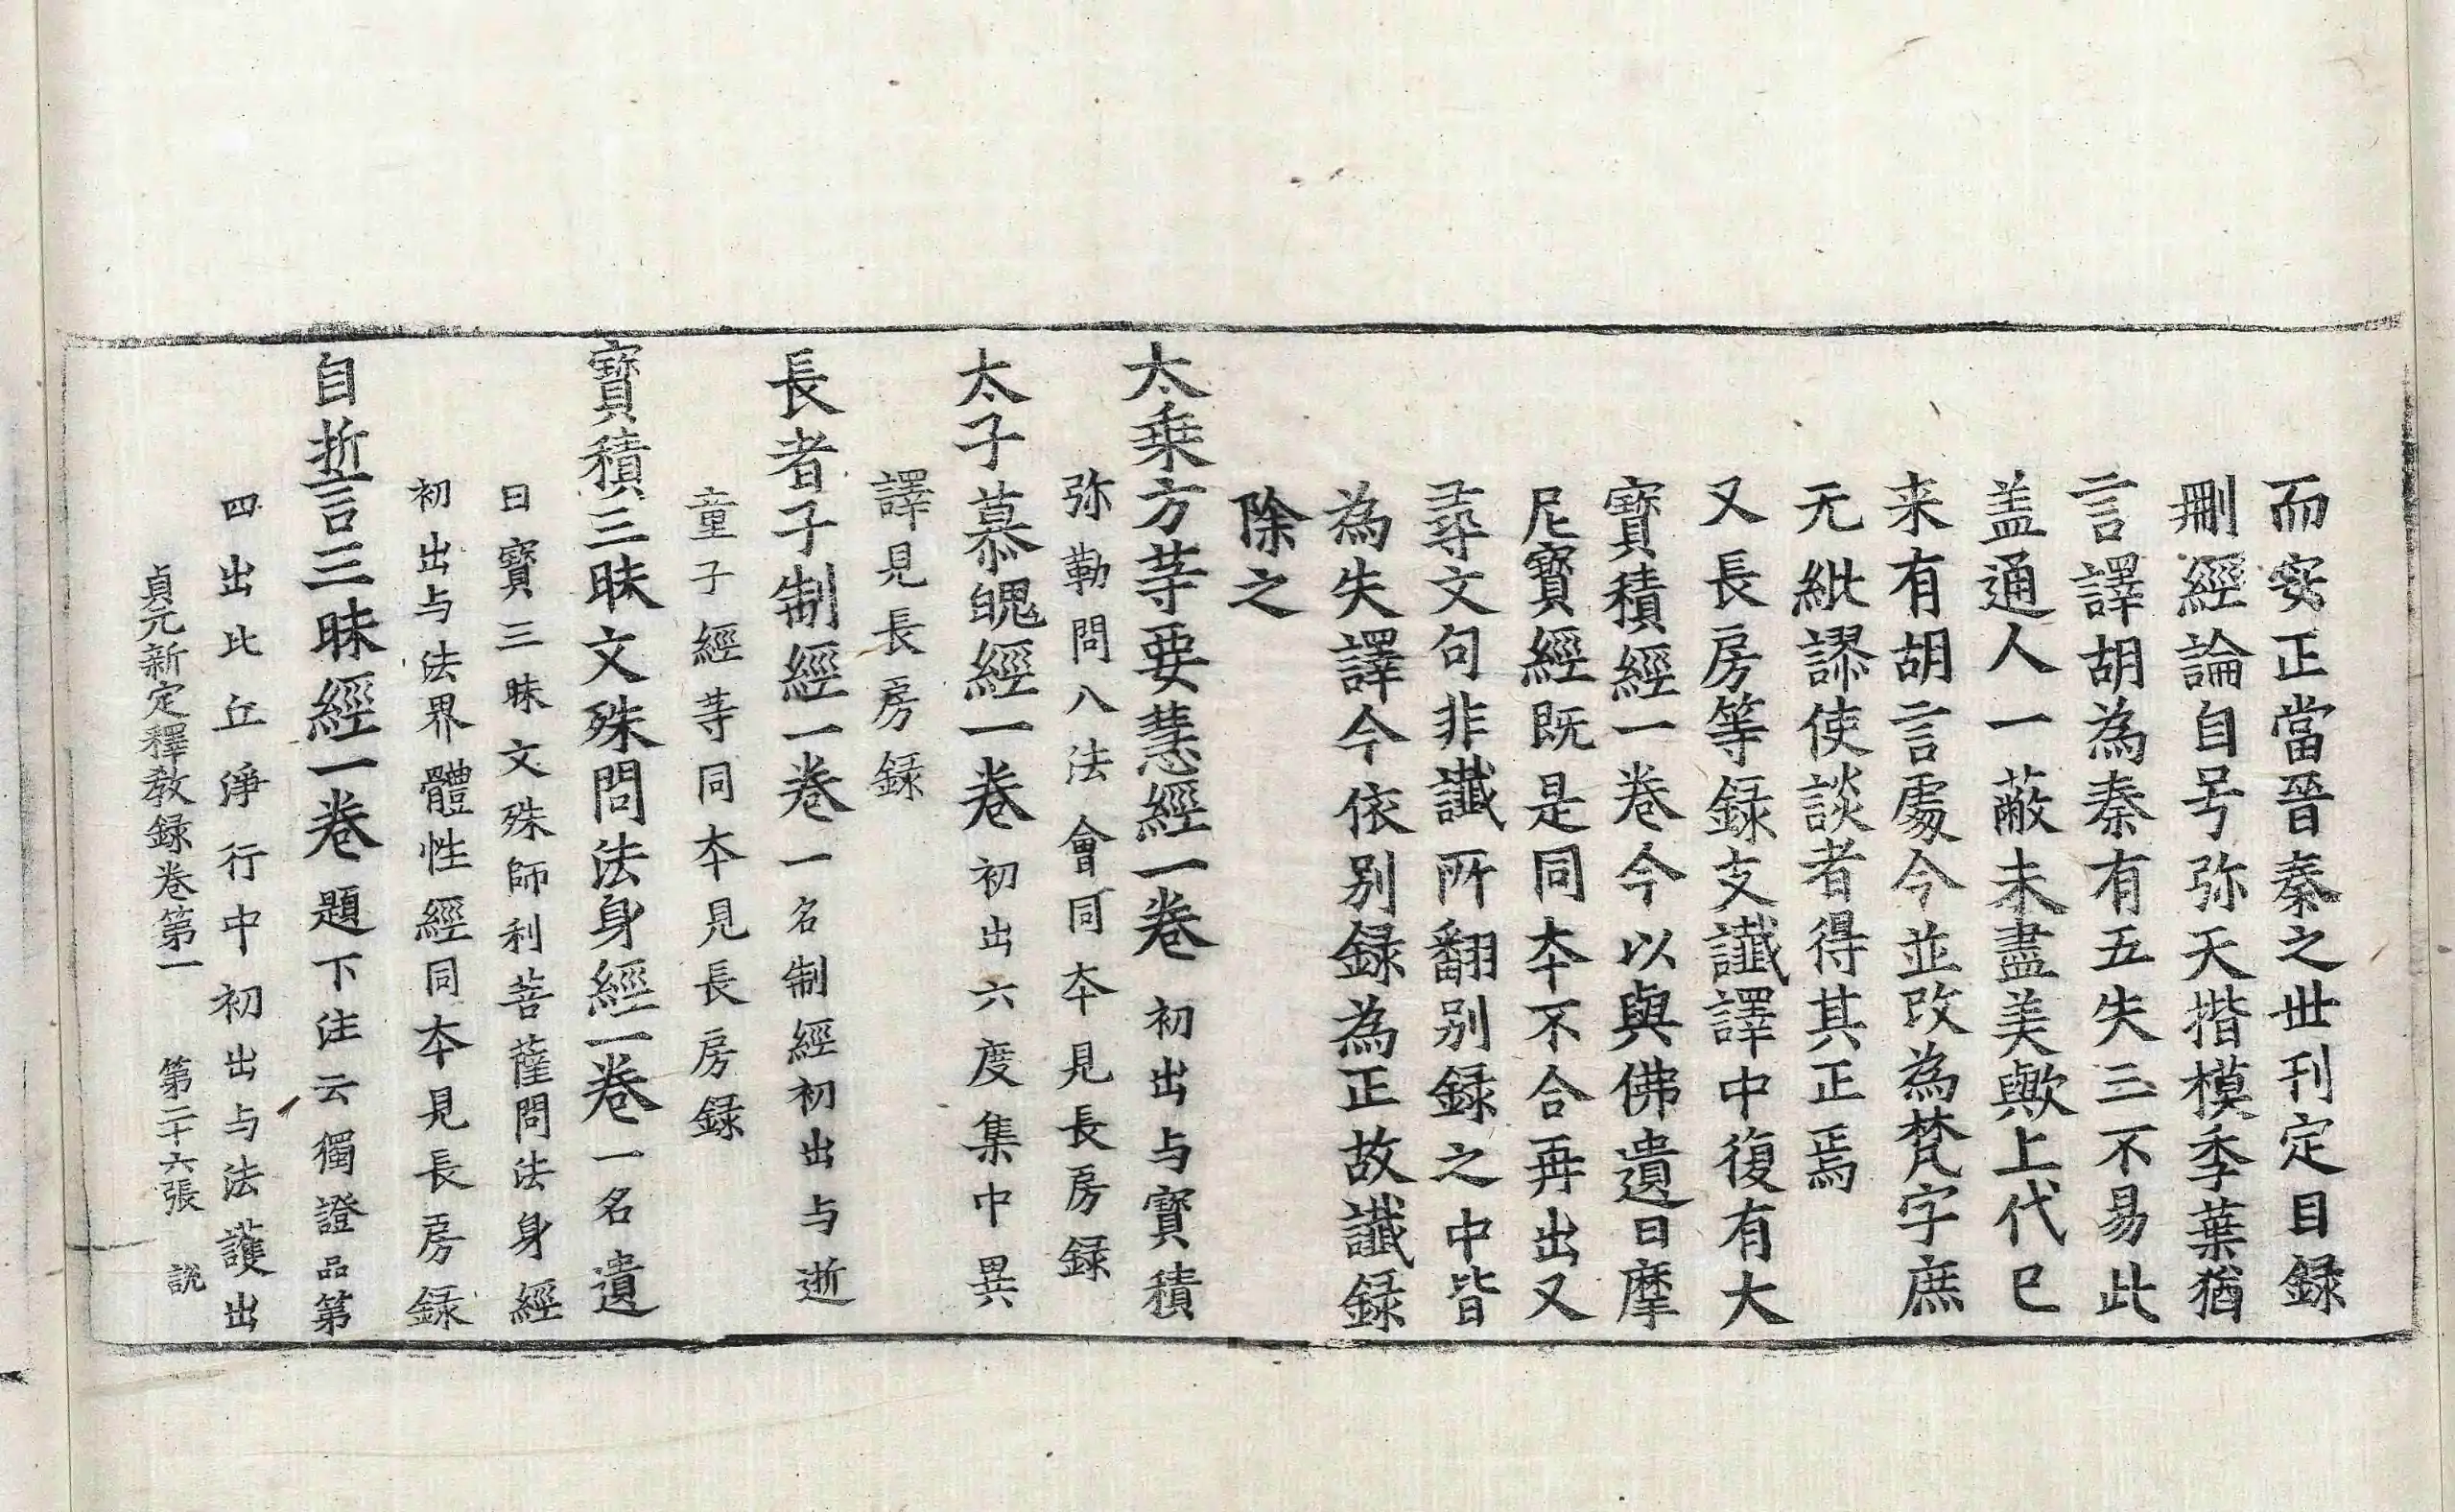 而安正當晉秦之世刊定目録
刪經論自号弥天揩模季葉猶
言譯胡為秦有五失三不易此
盖通人一蔽未盡美歟上代已
来有胡言處今並改為梵字庶
无紕謬使談者得其正焉
又長房等録支讖譯中復有大
寶積經一卷今以與佛遺日摩
尼寶經既是同夲不合再出又
尋文句非讖所翻别録之中皆
為失譯今依别録為正故讖録
除之
太乗方䓁要慧經一卷 初出与寶積
弥勒問八法會同夲見長房録
太子慕魄經一卷 初出六度集中異
譯見長房録
長者子制經一卷 一名制經初出与逝
童子經䓁同夲見長房録
寶積三昧文殊問法身經一卷 一名遺
日寶三昧文殊師利菩薩問法身經
初出与法界體性經同夲見長房録
自誓三昧經一卷 題下注云獨證品第
四出比丘淨行中初出与法護出
貞元新定釋教録卷第一 第二十六張 説